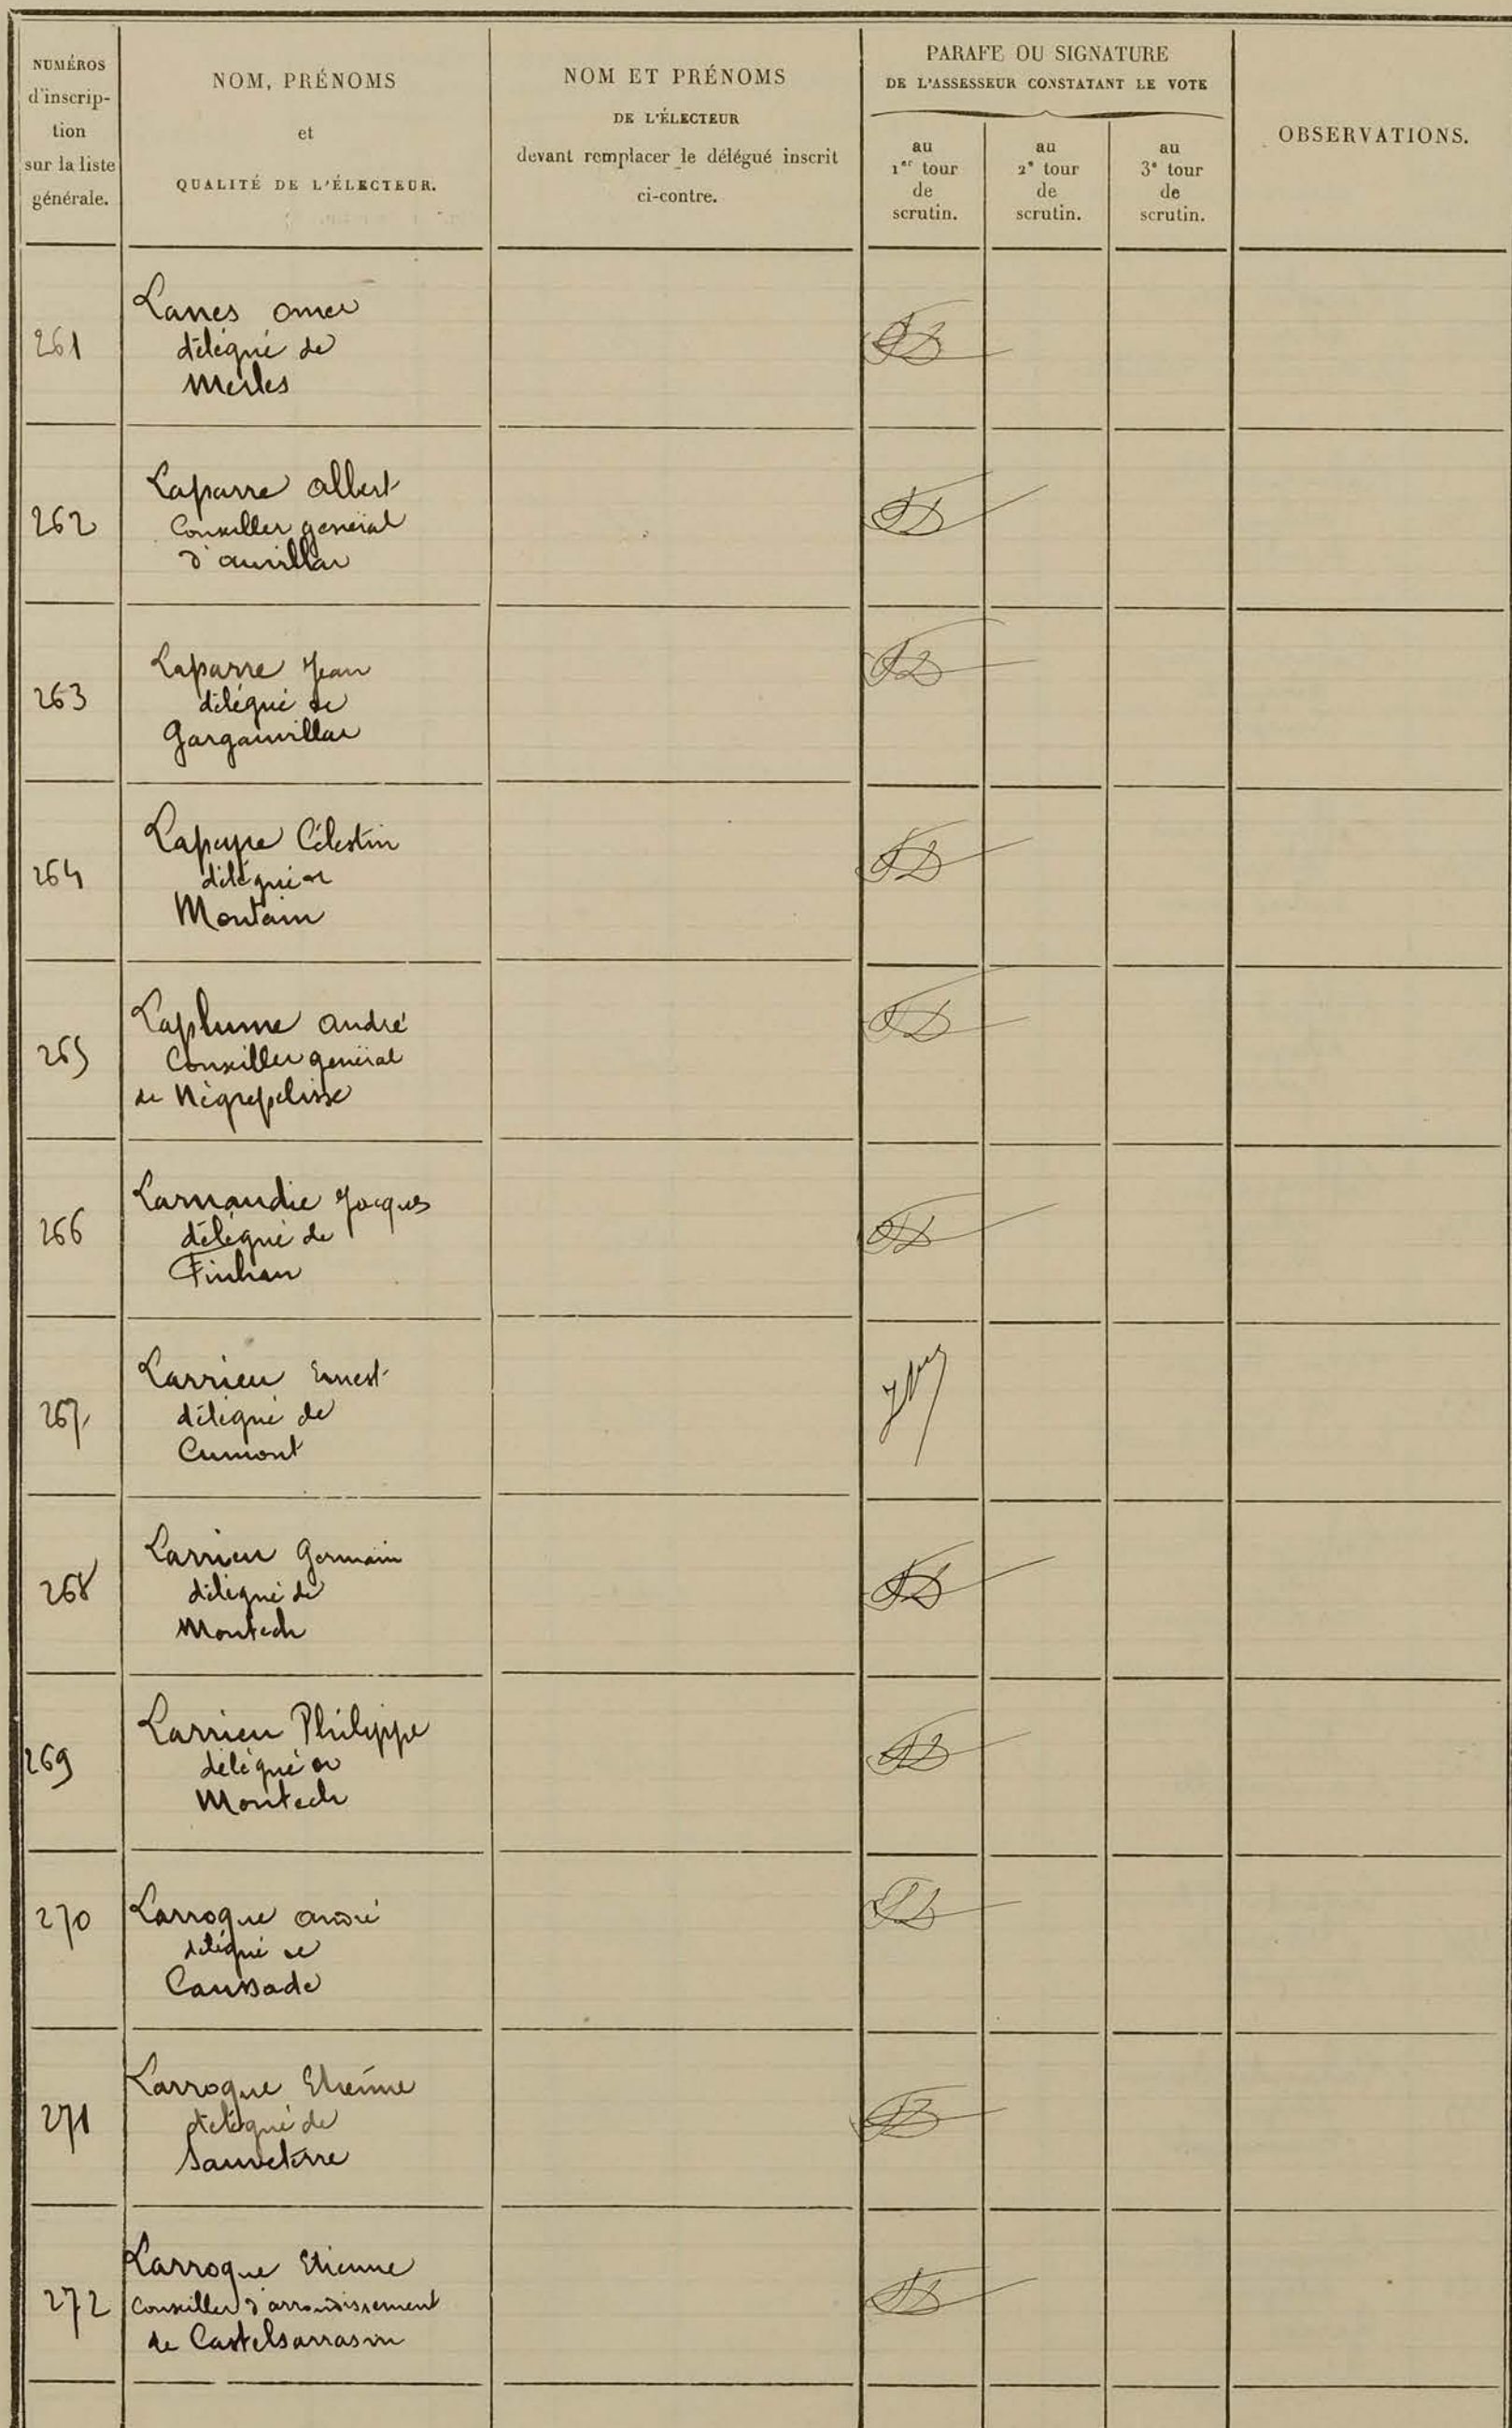 NUMÉROS
d'inscrip-
tion
sur la liste
générale.
NOM, PRÉNOMS
et
QUALITÉ DE L'ÉLECTEUR.
NOM ET PRÉNOMS
DE L'ÉLECTEUR
devant remplacer le délégué inscrit
ci-contre.
PARAFE OU SIGNATURE
DE L'ASSESSEUR CONSTATANT LE VOTE
au
1er tour
de
scrutin.
au
2e tour
de
scrutin.
au
3e tour
de
scrutin.
OBSERVATIONS.
261
Lanes Omer
délégué de
Merles
262
Laparre Albert
Conseiller général
d'auvillar
263
Laparre Jean
délégué de
Garganvillar
264
Lapeyre Célestin
délégué de
Montain
265
Laplume André
Conseiller général
de Nègrepelisse
266
Larnaudie Jacques
délégué de
Finhan
267
Larrieu Ernest
délégué de
Cumont
268
Larrieu Germain
délégué de
Montech
269
Larrieu Philippe
délégué de
Montech
270
Larroque André
délégué de
Caussade
271
Larroque Etienne
délégué de
Sauveterre
272
Larroque Etienne
Conseiller d'arrondissement
de Castelsarrasin